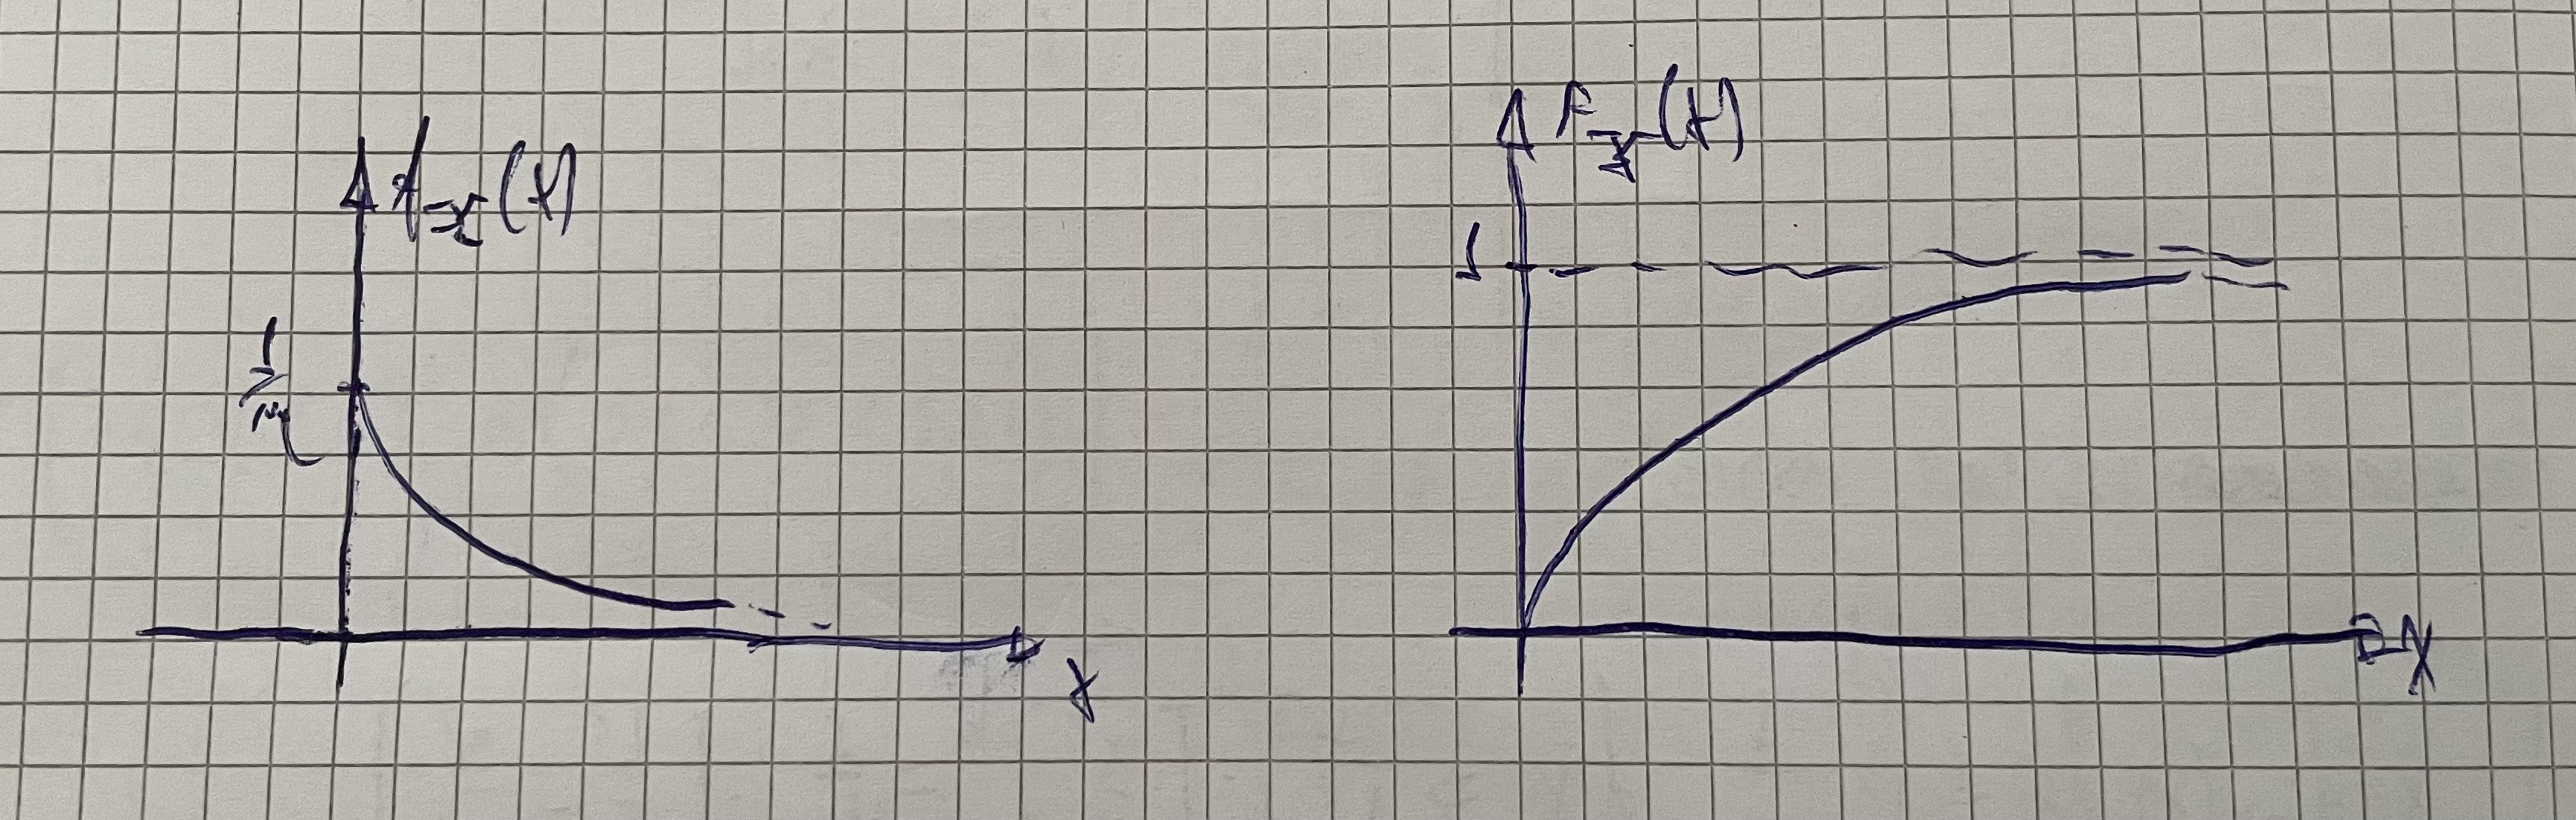 f_X(x)
1
x
F_X(x)
1
x